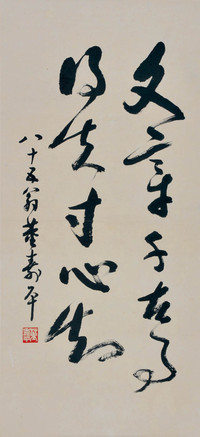 文章千古事
得失寸心知
八十五翁董寿平